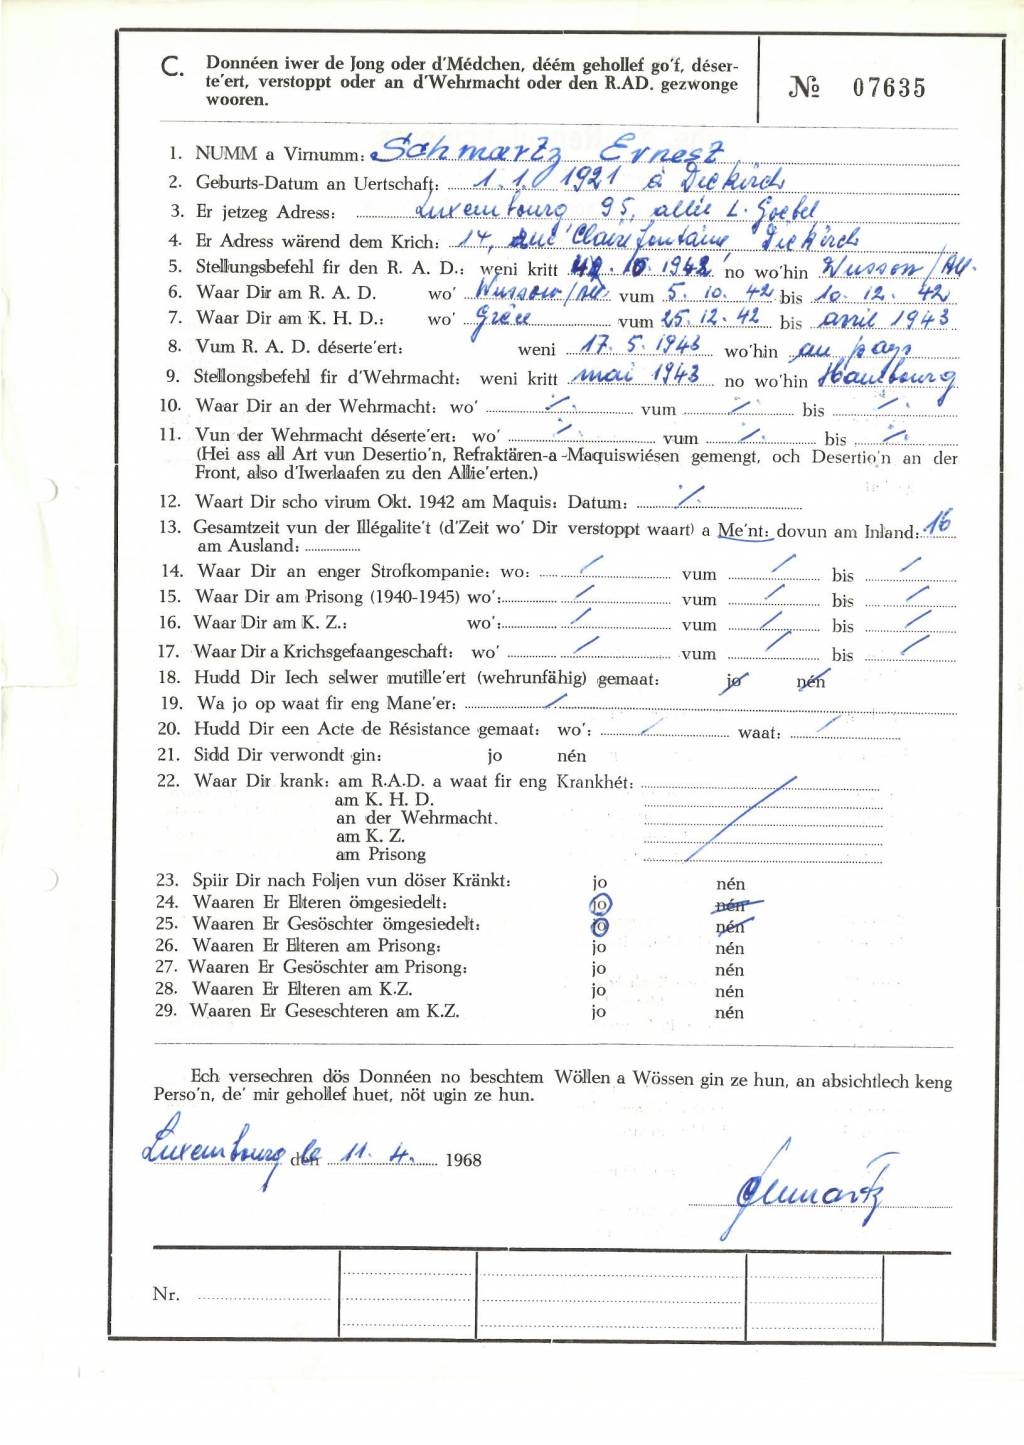 C. Donnéen iwer de Jong oder d'Médchen, déém gehollef go'f, déser-
te'ert, verstoppt oder an d'Wehrmacht oder den R.AD. gezwonge
wooren.
№ 07635
1. NUMM a Virnumm: Schmartz Ernest
2. Geburts-Datum an Uertschaft: 1. 1. 1921 à Diekirch
3. Er jetzeg Adress: Luxembourg 95, allée L. Goebel
4. Er Adress wärend dem Krich: 14, rue Clairefontaine Diekirch
5. Stellungsbefehl fir den R. A. D.: weni kritt 10 1942 no wo'hin Wussow/All.
6. Waar Dir am R. A. D. wo' Wussow/All vum 5. 10. 42 bis 10. 12. 42
7. Waar Dir am K. H. D.: wo' Grèce vum 25. 12. 42 bis avril 1943
8. Vum R. A. D. déserte'ert: weni 17. 5. 1943 wo'hin au pays
9. Stellongsbefehl fir d'Wehrmacht: weni kritt mai 1943 no wo'hin Hambourg
10. Waar Dir an der Wehrmacht: wo' ./. vum ./. bis ./.
11. Vun der Wehrmacht déserte'ert: wo' ./. vum ./. bis ./.
(Hei ass all Art vun Desertio'n, Refraktären-a-Maquiswiésen gemengt, och Desertio'n an der
Front, also d'Iwerlaafen zu den Allie'erten.)
12. Waart Dir scho virum Okt. 1942 am Maquis: Datum: ./.
13. Gesamtzeit vun der Illégalite't (d'Zeit wo' Dir verstoppt waart) a Me'nt: dovun am Inland: 16
am Ausland:
14. Waar Dir an enger Strofkompanie: wo: / vum / bis /
15. Waar Dir am Prisong (1940-1945) wo': / vum / bis /
16. Waar Dir am K. Z.: wo': / vum / bis /
17. Waar Dir a Krichsgefaangeschaft: wo' / vum / bis /
18. Hudd Dir Iech selwer mutille'ert (wehrunfähig) gemaat: jo nén
19. Wa jo op waat fir eng Mane'er: /
20. Hudd Dir een Acte de Résistance gemaat: wo': / waat: /
21. Sidd Dir verwondt gin: jo nén
22. Waar Dir krank: am R.A.D. a waat fir eng Krankhét:
am K. H. D.
an der Wehrmacht.
am K. Z.
am Prisong
23. Spiir Dir nach Foljen vun döser Kränkt: jo nén
24. Waaren Er Elteren ömgesiedelt: jo nén
25. Waaren Er Gesöschter ömgesiedelt: jo nén
26. Waaren Er Elteren am Prisong: jo nén
27. Waaren Er Gesöschter am Prisong: jo nén
28. Waaren Er Elteren am K.Z. jo nén
29. Waaren Er Geseschteren am K.Z. jo nén
Ech versechren dös Donnéen no beschtem Wöllen a Wössen gin ze hun, an absichtlech keng
Perso'n, de' mir gehollef huet, nöt ugin ze hun.
Luxembourg le den 11. 4. 1968
Schmartz
Nr.